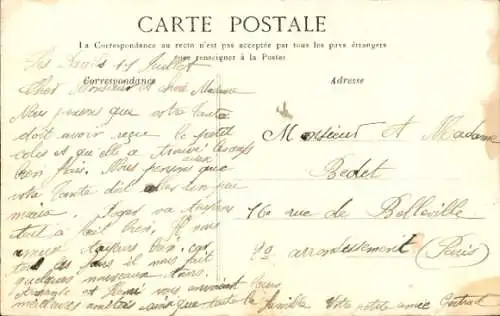 CARTE POSTALE
La Correspondance au recto n'est pas acceptée par tous les pays étrangers
se renseigner à la Poste
Correspondance
Adresse
Juillet
Cher Monsieur et chère Madame
Nous pensons que votre tante
doit avoir reçu le petit
colis et qu'elle a trouvé les œufs
bien frais. Nous pensons que
votre tante doit aller un peu
mieux. va toujours
tout à fait bien. Il nous
toujours bien, car
tous les jours il nous fait
quelques nouveaux tours.
et vous envoient leurs
meilleures amitiés ainsi que toute la famille Votre petite amie
Monsieur et Madame
Bedet
16 rue de Belleville
arrondissement (Paris)